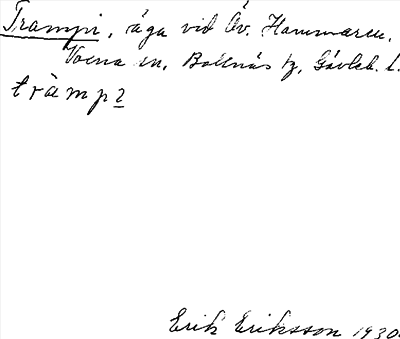 Trampi, äga vid Öv. Hammaren,
Voxna sn, Bollnäs tg, Gävleb. l.
tràmpı̲
Erik Eriksson 1930.